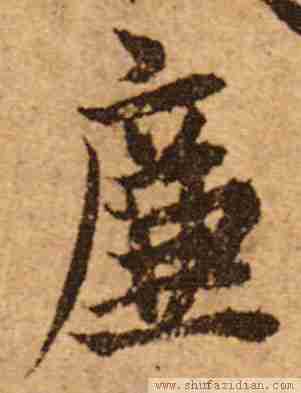 廉
www.shufazidian.com